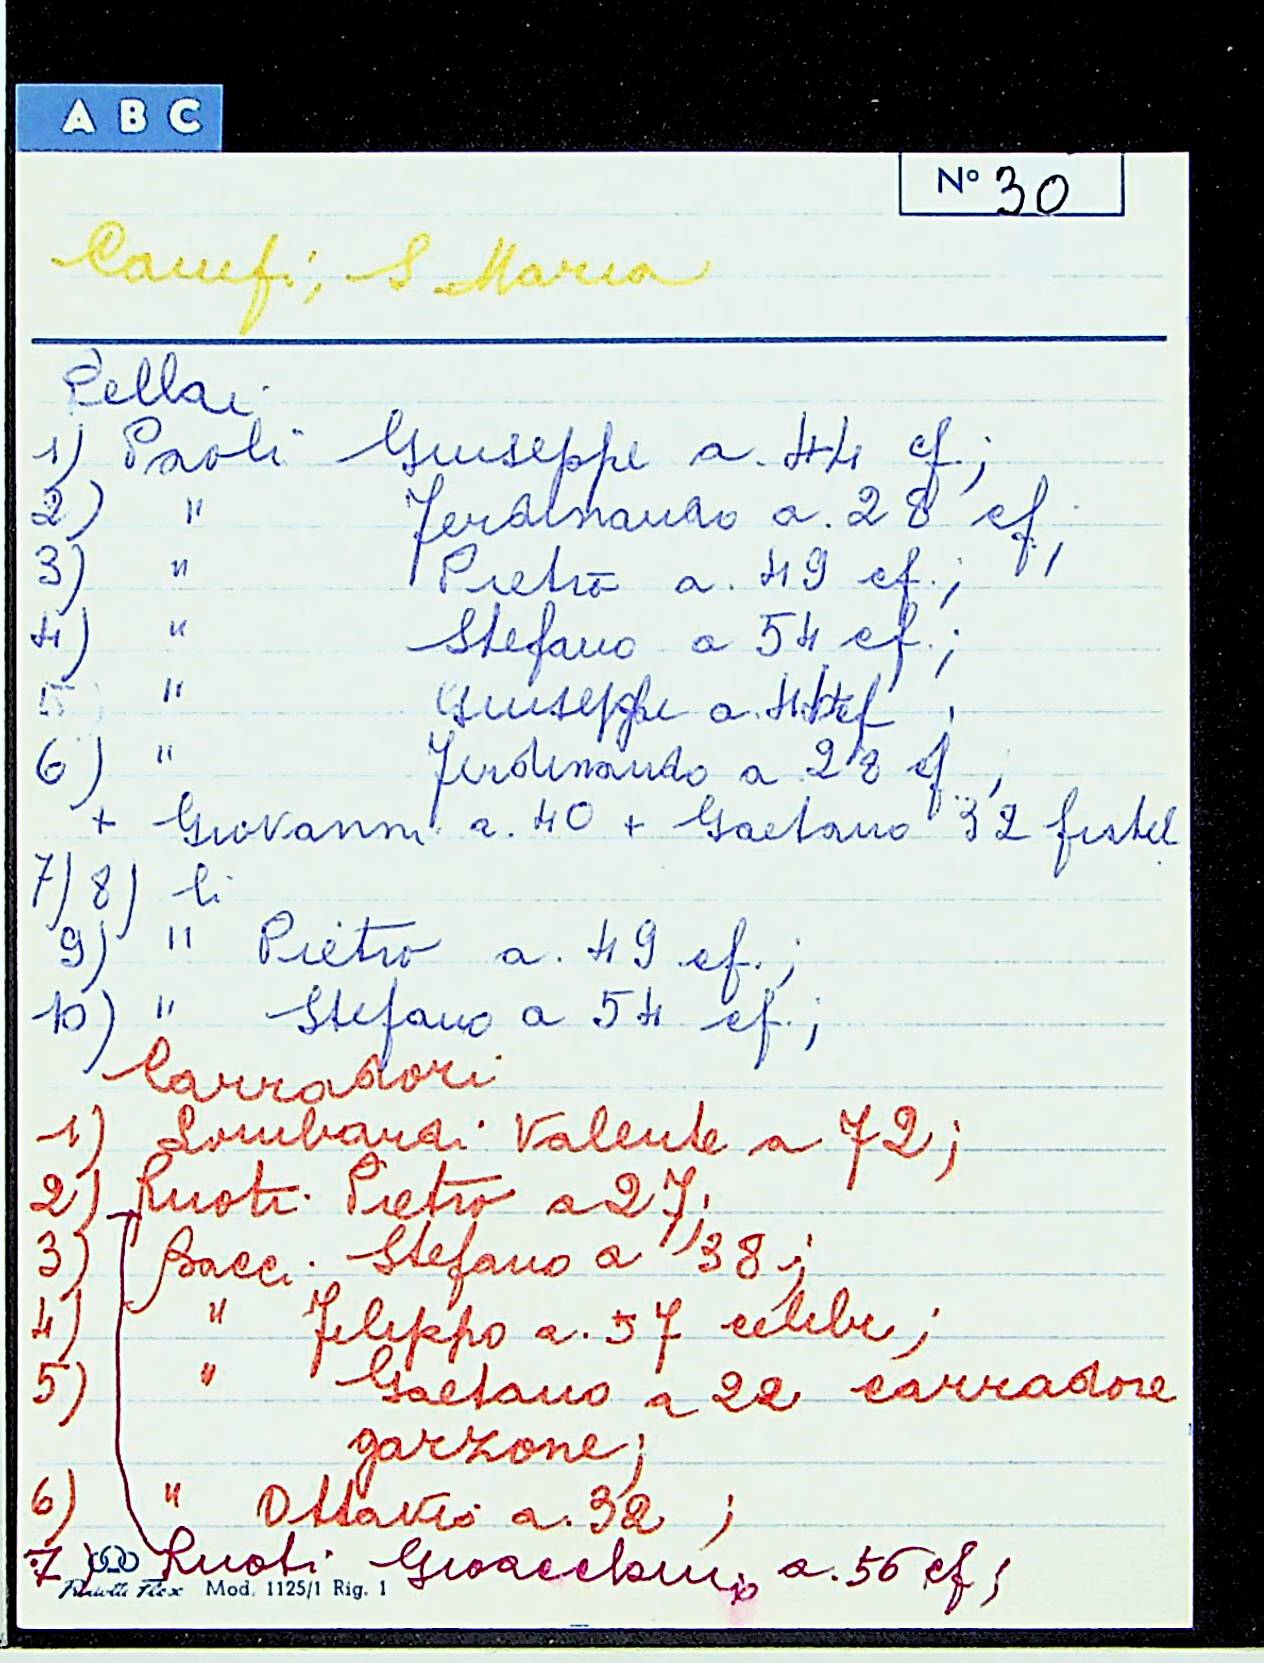 A B C
Nº 30
Campi; S Maria
Sellai
1) Paoli Giuseppe a. 44 cf.;
2) " Ferdinando a. 28 cf.;
3) " Pietro a. 49 cf.;
4) " Stefano a 54 cf.;
5) " Giuseppe a. 44 cf ;
6) " Ferdinando a 28 cf.;
+ Giovanni a. 40 + Gaetano 32 fratel
7) 8) li
9) " Pietro a. 49 cf.;
10) " Stefano a 54 cf.;
Carradori
1) Lombardi Valente a 72;
2) Ruoti Pietro a 27;
3) Bacci Stefano a 38;
4) " Filippo a. 57 celibe;
5) " Gaetano a 22 carradore
garzone;
6) " Ottavio a. 32 ;
7) Ruoti Gioacchino a. 56 cf;
Fratelli Flex Mod. 1125/1 Rig. 1